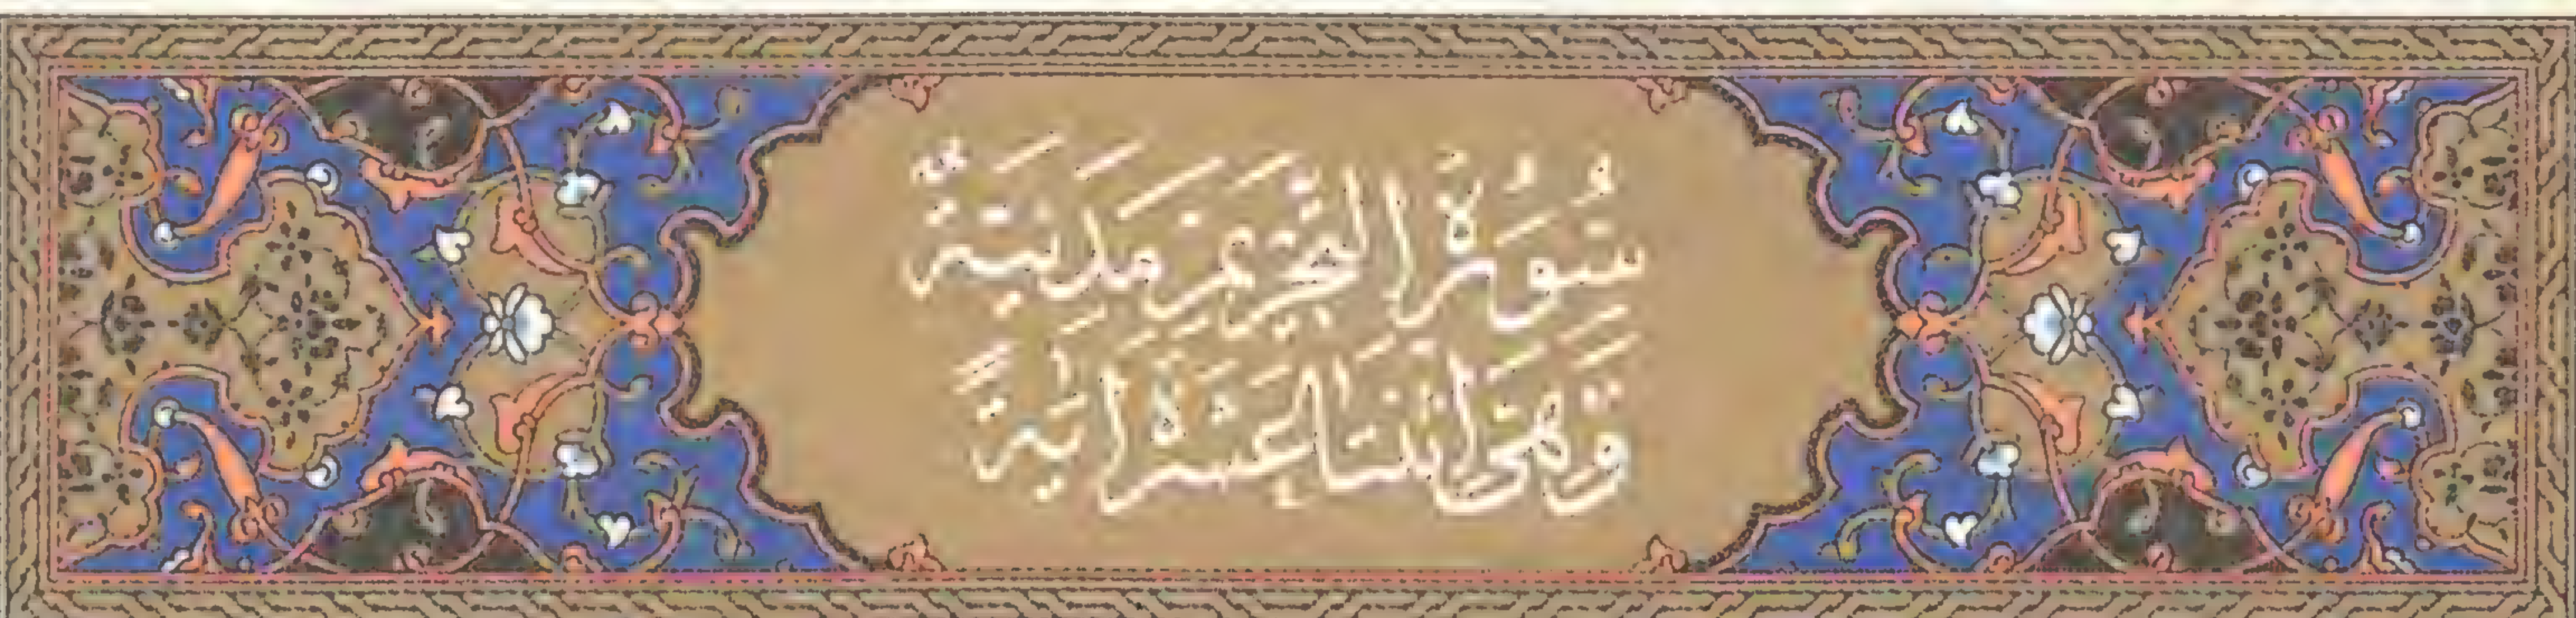 سُورَةُ التَّحْرِيمِ مَدَنِيَّةٌ
وَهِيَ اثْنَتَا عَشْرَةَ آيَةً